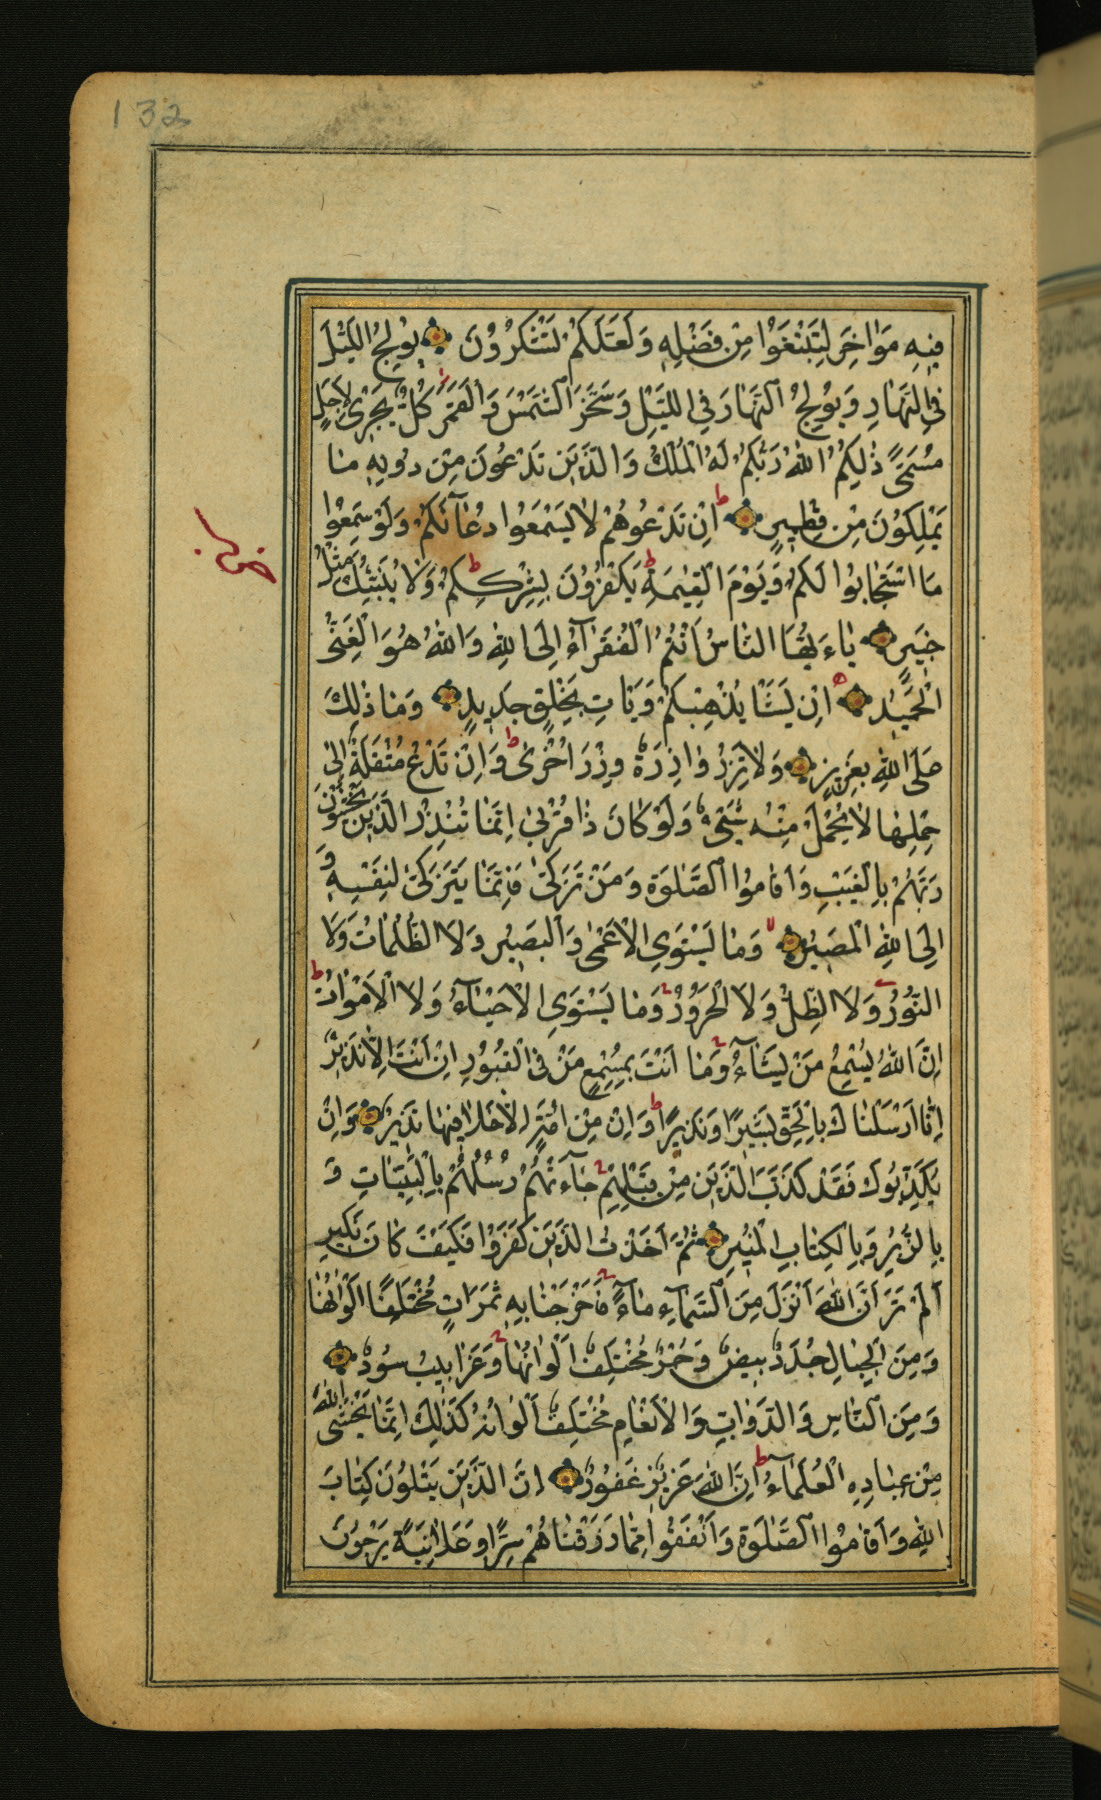 132
فِيهِ مَوَاخِرَ لِتَبْتَغُوا مِنْ فَضْلِهِ وَلَعَلَّكُمْ تَشْكُرُونَ يُولِجُ اللَّيْلَ
فِي النَّهَارِ وَيُولِجُ النَّهَارَ فِي اللَّيْلِ وَسَخَّرَ الشَّمْسَ وَالْقَمَرَ كُلٌّ يَجْرِي لِأَجَلٍ
مُسَمًّى ذَٰلِكُمُ اللَّهُ رَبُّكُمْ لَهُ الْمُلْكُ وَالَّذِينَ تَدْعُونَ مِنْ دُونِهِ مَا
يَمْلِكُونَ مِنْ قِطْمِيرٍ ط اِنْ تَدْعُوهُمْ لَا يَسْمَعُوا دُعَآئَكُمْ وَلَوْ سَمِعُوا
مَا اسْتَجَابُوا لَكُمْ وَيَوْمَ الْقِيٰمَةِ ط يَكْفُرُونَ بِشِرْكِكُمْ ط وَلَا يُنَبِّئُكَ مِثْلُ
خَبِيرٍ يَاءَيُّهَا النَّاسُ اَنْتُمُ الْفُقَرَآءُ اِلَى اللَّهِ وَاللَّهُ هُوَ الْغَنِيُّ
الْحَمِيدُ ه اِنْ يَشَا يُذْهِبْكُمْ وَيَاتِ بِخَلْقٍ جَدِيدٍ وَمَا ذَٰلِكَ
عَلَى اللَّهِ بِعَزِيزٍ وَلَا تَزِرُ وَازِرَةٌ وِزْرَ اُخْرَىٰ ط وَاِنْ تَدْعُ مُثْقَلَةٌ اِلَىٰ
حِمْلِهَا لَا يُحْمَلْ مِنْهُ شَيْءٌ وَلَوْ كَانَ ذَا قُرْبَىٰ اِنَّمَا تُنْذِرُ الَّذِينَ يَخْشَوْنَ
رَبَّهُمْ بِالْغَيْبِ وَاَقَامُوا الصَّلٰوةَ وَمَنْ تَزَكَّىٰ فَاِنَّمَا يَتَزَكَّىٰ لِنَفْسِهِ وَ
اِلَى اللَّهِ الْمَصِيرُ لا وَمَا يَسْتَوِي الْاَعْمَىٰ وَالْبَصِيرُ وَلَا الظُّلُمَاتُ وَلَا
النُّورُ وَلَا الظِّلُّ وَلَا الْحَرُورُ وَمَا يَسْتَوِي الْاَحْيَآءُ وَلَا الْاَمْوَاتُ ط
اِنَّ اللَّهَ يُسْمِعُ مَنْ يَشَآءُ وَمَا اَنْتَ بِمُسْمِعٍ مَنْ فِي الْقُبُورِ اِنْ اَنْتَ اِلَّا نَذِيرٌ
اِنَّا اَرْسَلْنَاكَ بِالْحَقِّ بَشِيرًا وَنَذِيرًا ط وَاِنْ مِنْ اُمَّةٍ اِلَّا خَلَا فِيهَا نَذِيرٌ وَاِنْ
يُكَذِّبُوكَ فَقَدْ كَذَّبَ الَّذِينَ مِنْ قَبْلِهِمْ جَآءَتْهُمْ رُسُلُهُمْ بِالْبَيِّنَاتِ وَ
بِالزُّبُرِ وَبِالْكِتَابِ الْمُنِيرِ ثُمَّ اَخَذْتُ الَّذِينَ كَفَرُوا فَكَيْفَ كَانَ نَكِيرِ
اَلَمْ تَرَ اَنَّ اللَّهَ اَنْزَلَ مِنَ السَّمَآءِ مَآءً فَاَخْرَجْنَا بِهِ ثَمَرَاتٍ مُخْتَلِفًا اَلْوَانُهَا
وَمِنَ الْجِبَالِ جُدَدٌ بِيضٌ وَحُمْرٌ مُخْتَلِفٌ اَلْوَانُهَا وَغَرَابِيبُ سُودٌ
وَمِنَ النَّاسِ وَالدَّوَابِّ وَالْاَنْعَامِ مُخْتَلِفٌ اَلْوَانُهُ كَذَٰلِكَ اِنَّمَا يَخْشَى اللَّهَ
مِنْ عِبَادِهِ الْعُلَمَآءُ ط اِنَّ اللَّهَ عَزِيزٌ غَفُورٌ اِنَّ الَّذِينَ يَتْلُونَ كِتَابَ
اللَّهِ وَاَقَامُوا الصَّلٰوةَ وَاَنْفَقُوا مِمَّا رَزَقْنَاهُمْ سِرًّا وَعَلَانِيَةً يَرْجُونَ